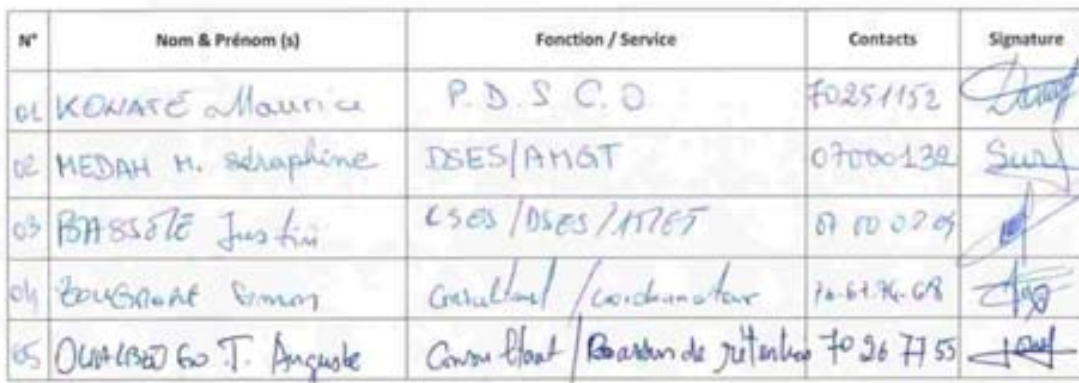 N° Nom & Prénom (s) Fonction / Service Contacts Signature
01 KONATÉ Maurice P.D.S C.O 70251152
02 MEDAH M. Séraphine DSES/AMGT 07000132
03 BASSOLE Justin DSES
04 Simon Consultant / Coordonnateur 70-61-74-68
05 T. Auguste Consultant / Bassin de rétention 70 26 77 55